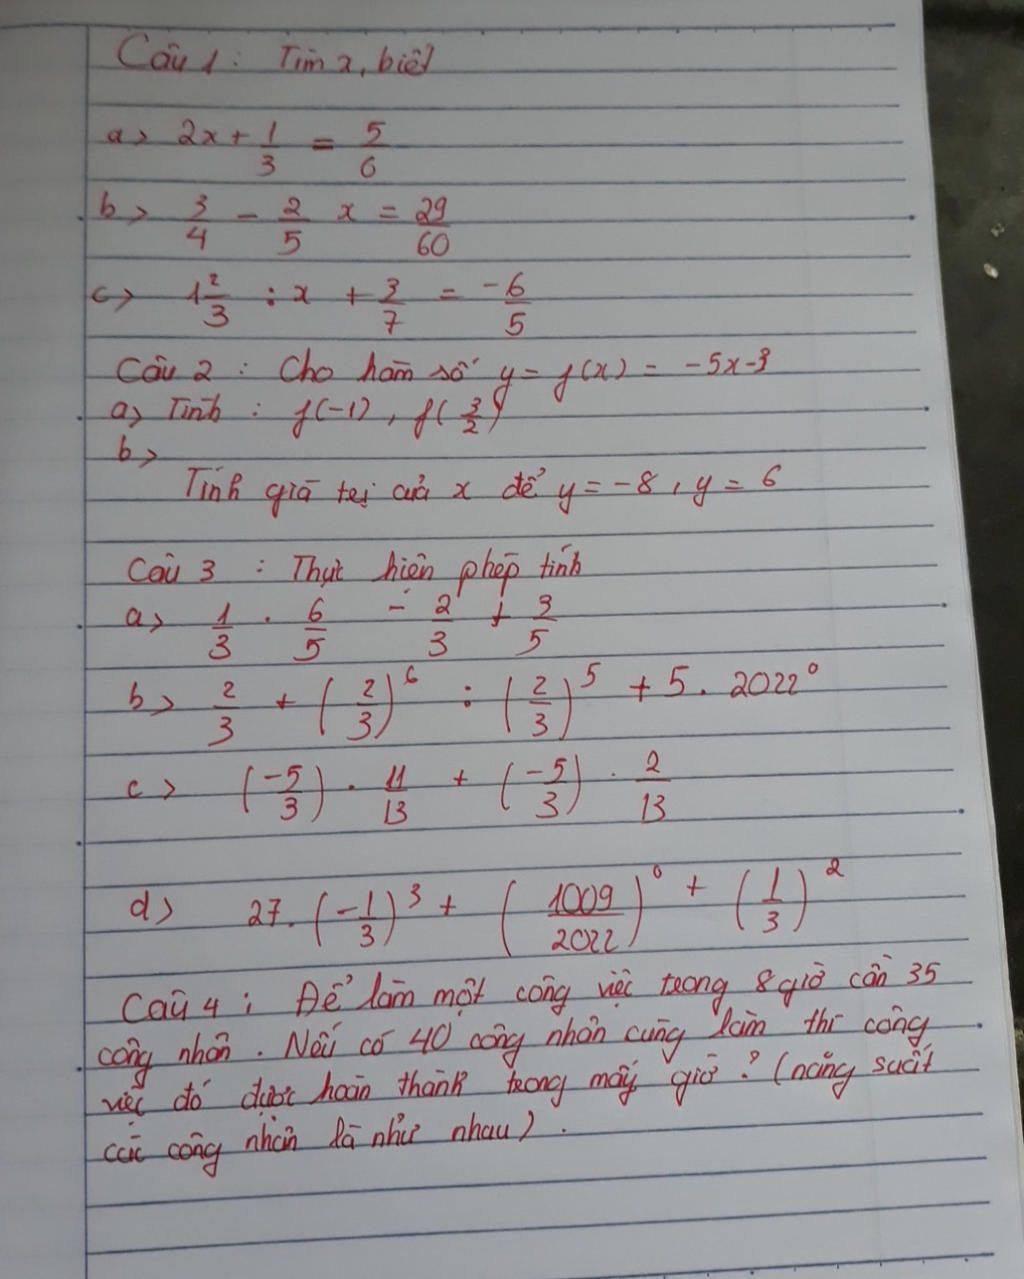 Câu 1 : Tìm x, biết
a> 2x + 1/3 = 5/6
b> 3/4 - 2/5 x = 29/60
c> 1 2/3 : x + 3/7 = -6/5
Câu 2 : Cho hàm số y = f(x) = -5x-3
a> Tính : f(-1), f(3/2)
b>
Tính giá trị của x để y = -8, y = 6
Câu 3 : Thực hiện phép tính
a> 1/3 . 6/5 - 2/3 + 3/5
b> 2/3 + (2/3)⁶ : (2/3)⁵ + 5. 2022⁰
c> (-5/3) . 11/13 + (-5/3) . 2/13
d> 27. (-1/3)³ + (1009/2022)⁰ + (1/3)²
Câu 4 : Để làm một công việc trong 8 giờ cần 35
công nhân. Nếu có 40 công nhân cùng làm thì công
việc đó được hoàn thành trong mấy giờ ? (năng suất
các công nhân là như nhau).